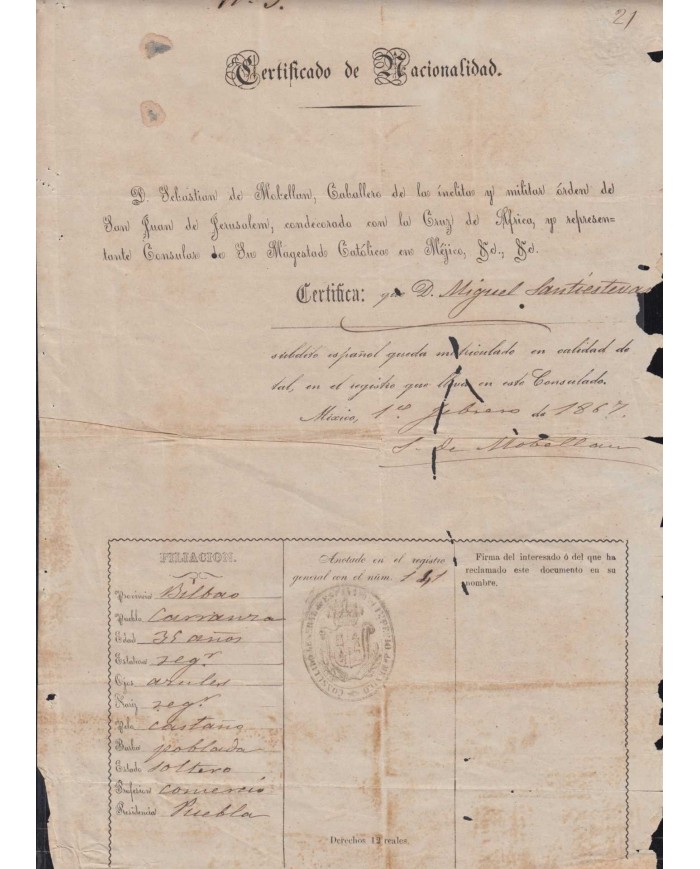 21
Certificado de Nacionalidad.
D. Sebastian de Mobellan, Caballero de la ínclita y militar órden de
San Juan de Jerusalem, condecorado con la Cruz de Africa, y represen-
tante Consular de Su Magestad Católica en Méjico, &c., &c.
Certifica: que D. Miguel Santiestevan
súbdito español queda matriculado en calidad de
tal, en el registro que lleva en este Consulado.
México, 1º febrero de 1867.
S. de Mobellan
FILIACION.
Provincia Bilbao
Pueblo Carranza
Edad 35 años
Estatura regr.
Ojos azules
Nariz regr.
Pelo castaño
Barba poblada
Estado soltero
Profesion comercio
Residencia Puebla
Anotado en el registro
general con el núm. 141
CONSULADO GENERAL DE ESPAÑA
Derechos 12 reales.
Firma del interesado ó del que ha
reclamado este documento en su
nombre.